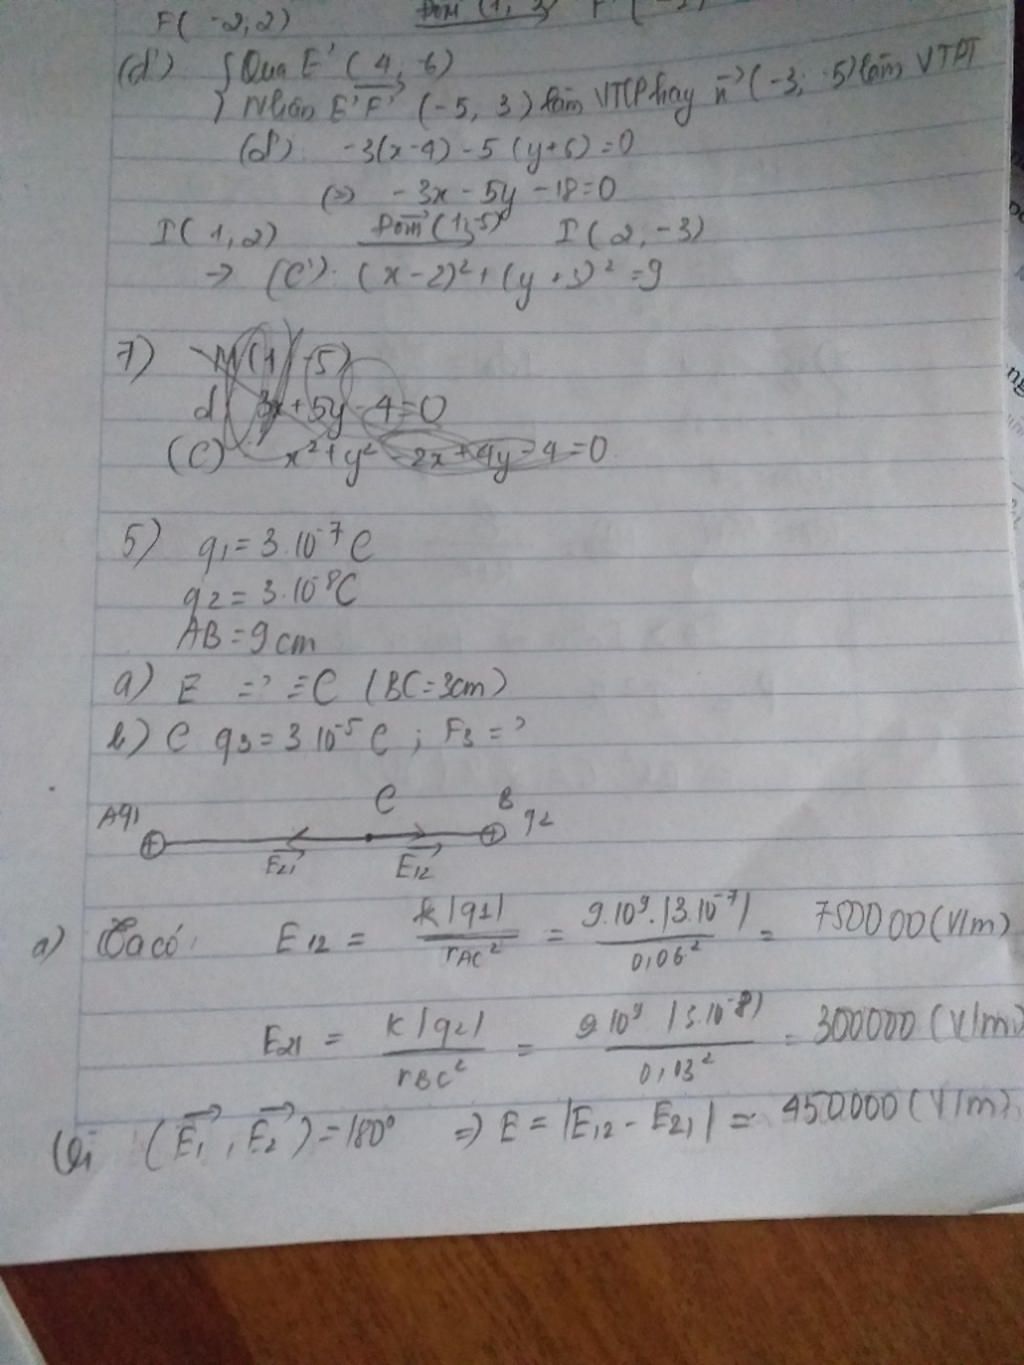 F(-2,2)
(d') { Qua E' (4, -6)
Nhân E'F' (-5, 3) làm VTCP hay n' (-3, -5) làm VTPT
(d'): -3(x-4) - 5 (y+6) = 0
(=> -3x - 5y - 18 = 0
I(1,2) I(2,-3)
-> (C'): (x-2)² + (y+3)² = 9
7) M(1, -5)
d 3x + 5y - 4 = 0
(C) x² + y² - 2x + 4y - 4 = 0
5) q1 = 3.10⁻⁷ C
q2 = 3.10⁻⁸ C
AB = 9 cm
a) E = ? ≡ C (BC = 3cm)
b) C q3 = 3 10⁻⁵ C ; F3 = ?
A q1 C B q2
E21 E12
a) Ta có: E12 = k|q1| / rAC² = 9.10⁹.|3.10⁻⁷| / 0,06² = 750000 (V/m)
E21 = k|q2| / rBC² = 9 10⁹ |3.10⁻⁸| / 0,03² = 300000 (V/m)
Vì (E1, E2) = 180° => E = |E12 - E21| = 450000 (V/m)